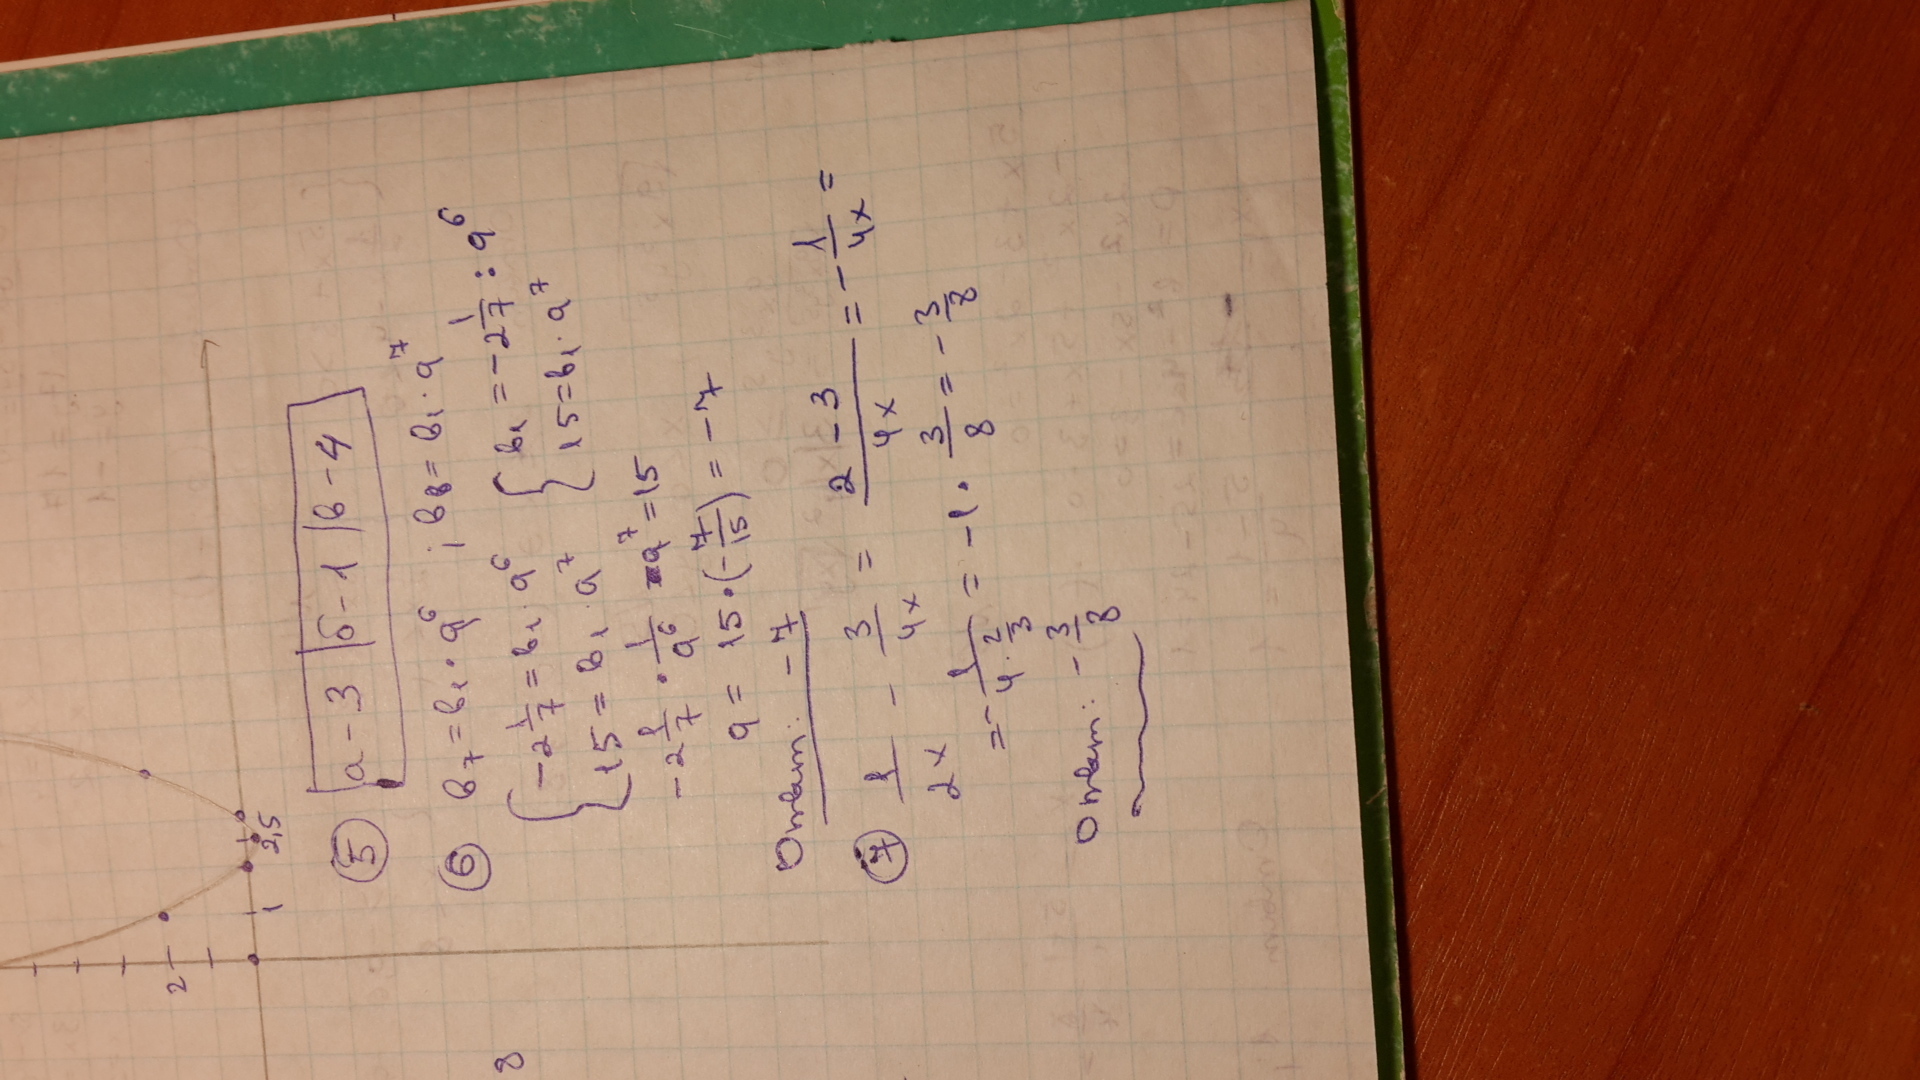 2
1
2,5
8
⑤ а-3 | б-1 | в-4
⑥ b₇ = b₁ · q⁶ ; b₈ = b₁ · q⁷
{ -2 1/7 = b₁ · q⁶ { b₁ = -2 1/7 : q⁶
15 = b₁ · q⁷ 15 = b₁ · q⁷
-2 1/7 · 1/q⁶ · q⁷ = 15
q = 15 · (-7/15) = -7
Ответ: -7
⑦ 1/2x - 3/4x = 2-3/4x = -1/4x =
= -1/4·2/3 = -1 · 3/8 = -3/8
Ответ: -3/8